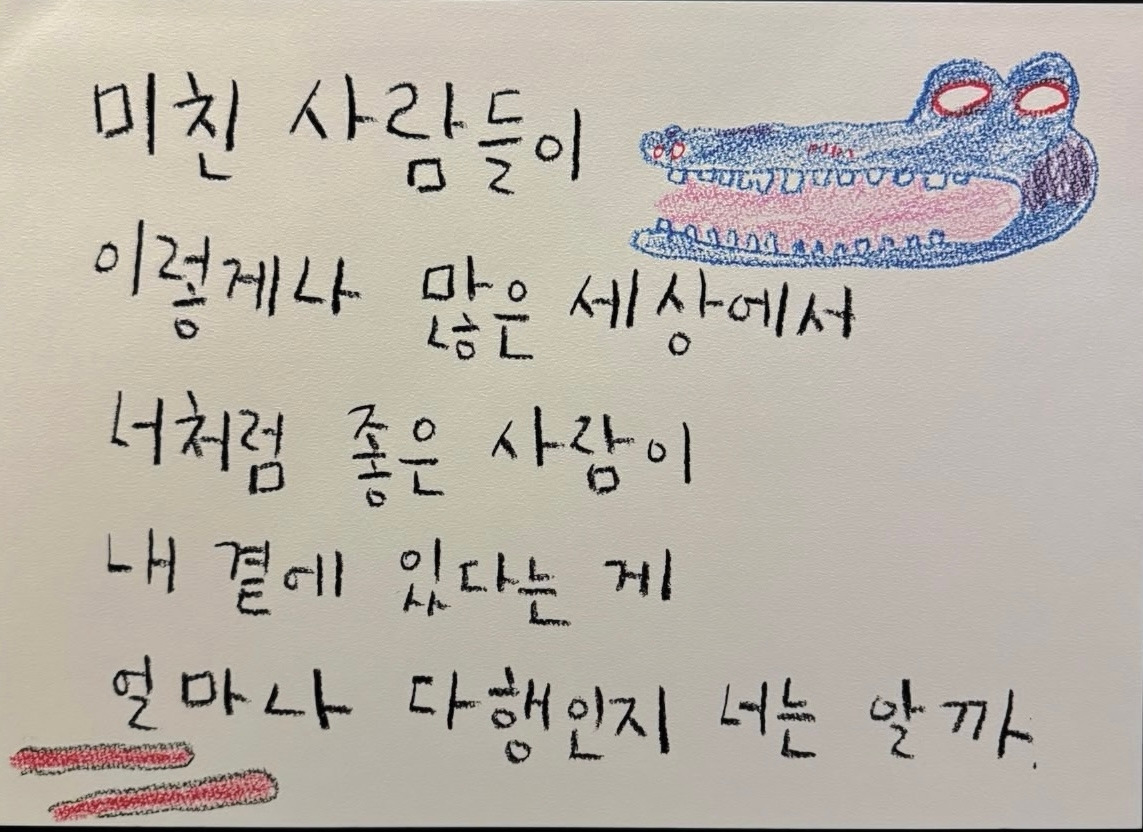 미친 사람들이
이렇게나 많은 세상에서
너처럼 좋은 사람이
내 곁에 있다는 게
얼마나 다행인지 너는 알까.